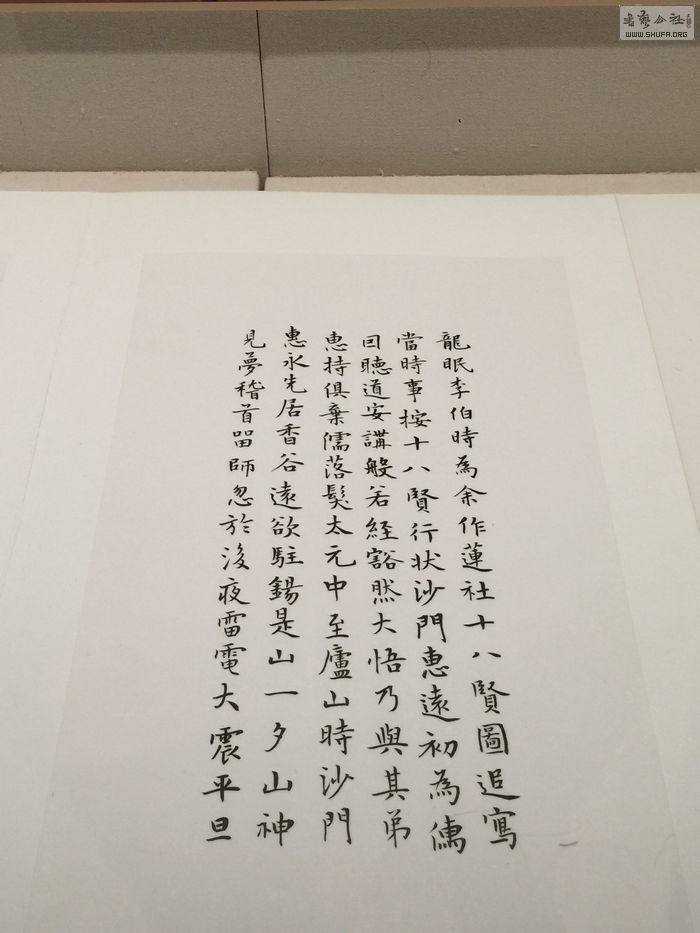 龍眠李伯時為余作蓮社十八賢圖追寫
當時事按十八賢行状沙門惠遠初為儒
因聽道安講般若経豁然大悟乃與其弟
惠持俱棄儒落髮太元中至廬山時沙門
惠永先居香谷遠欲駐錫是山一夕山神
見夢稽首留師忽於後夜雷電大震平旦
書藝公社
WWW.SHUFA.ORG